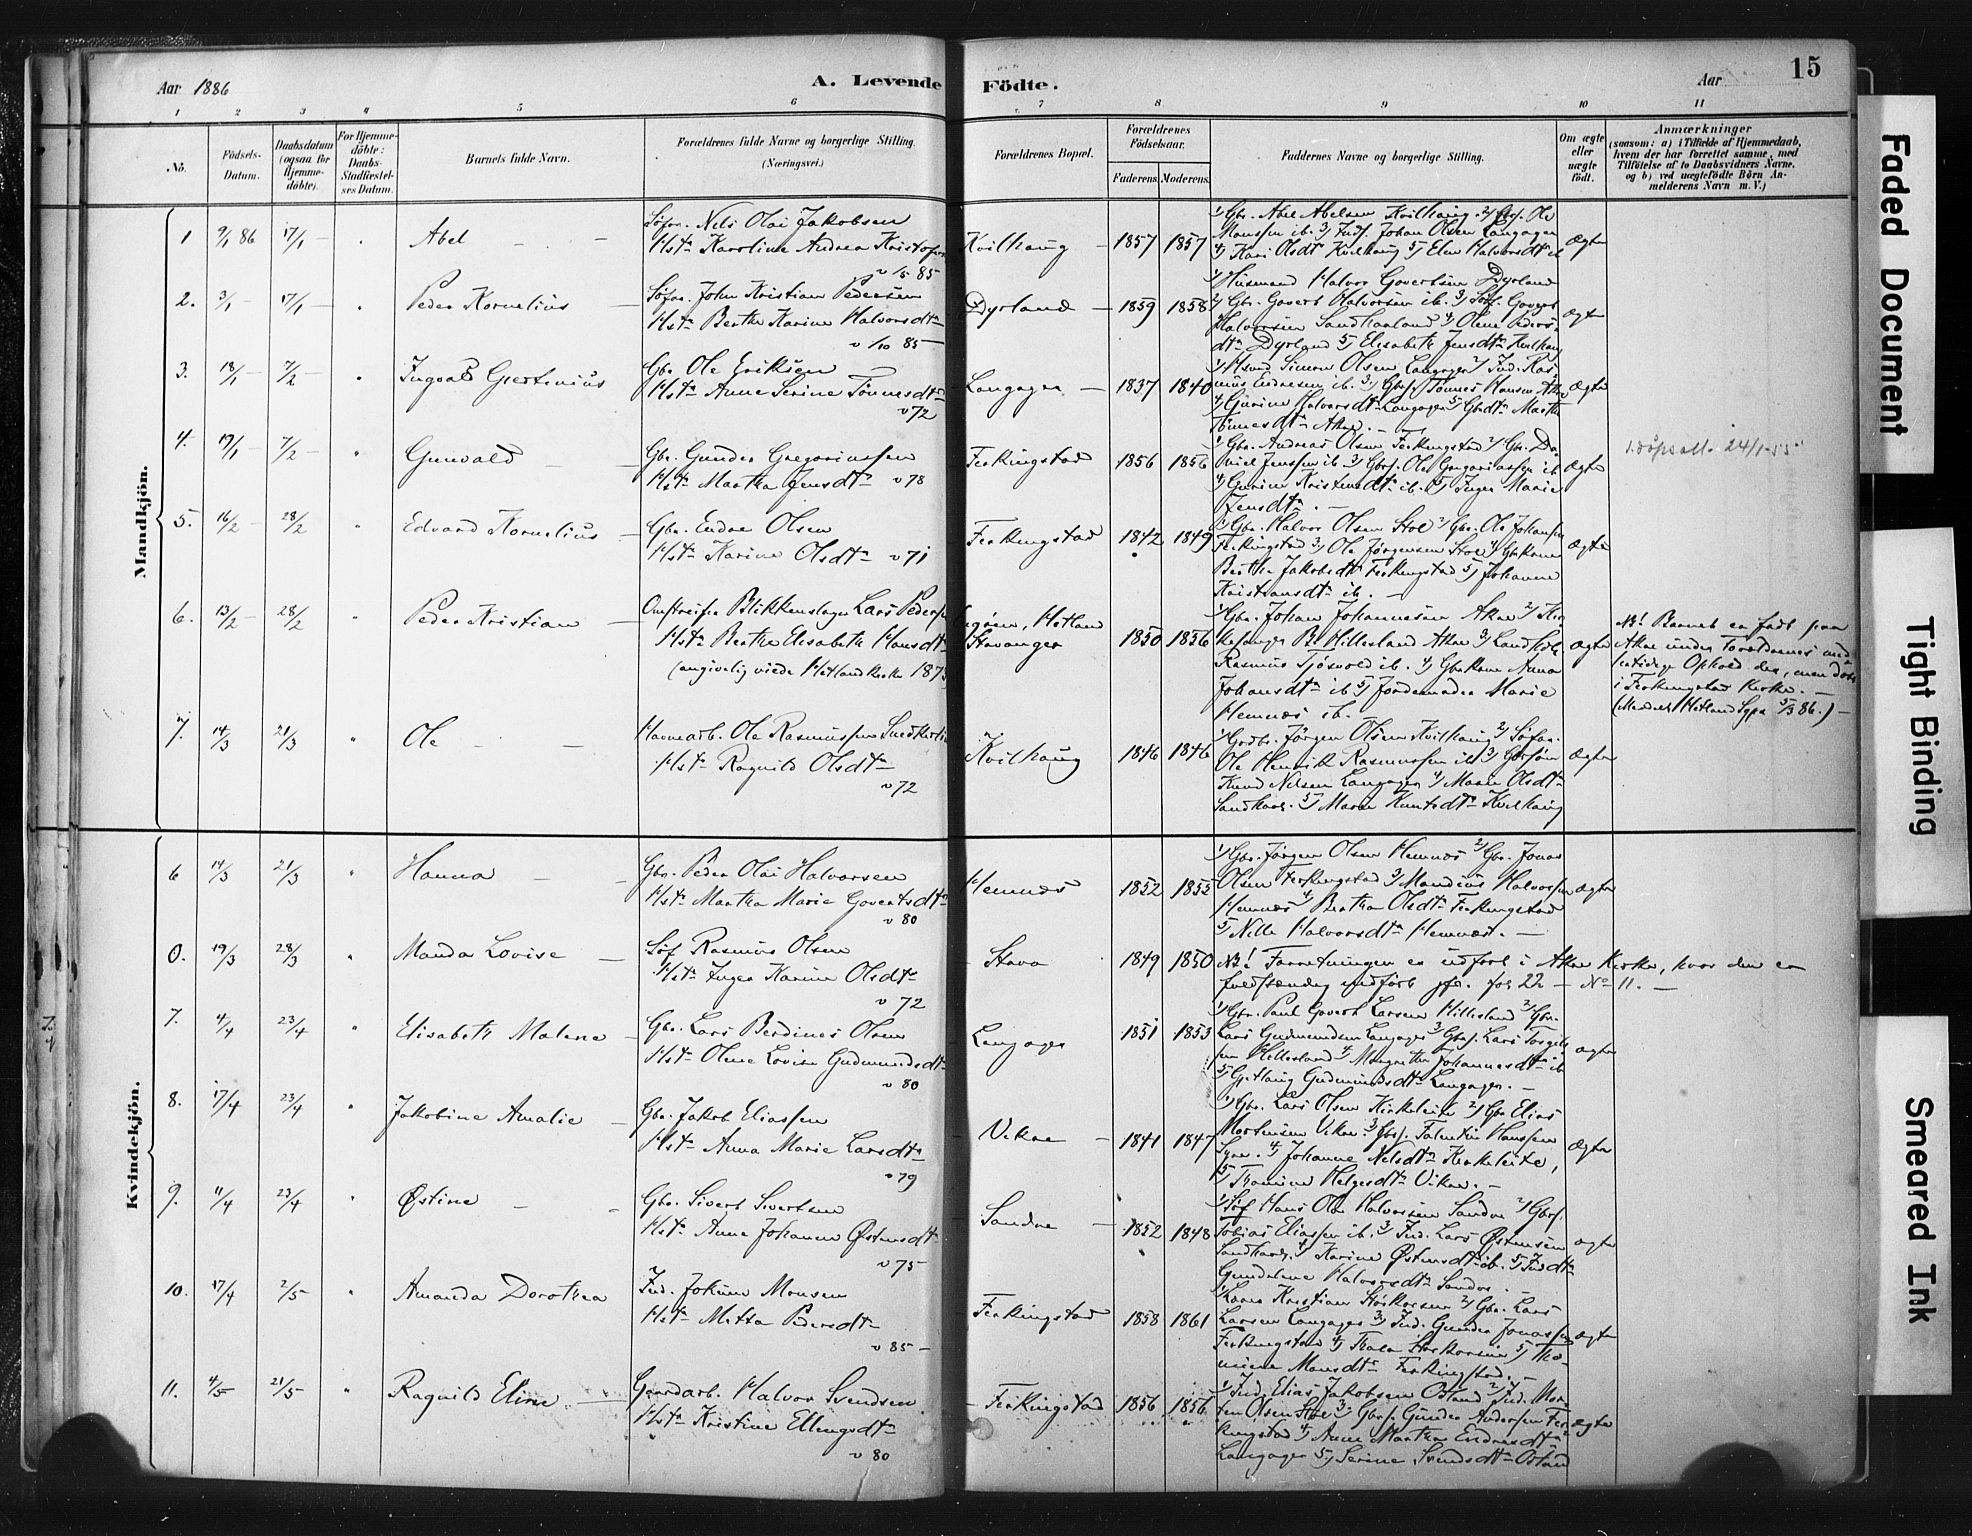 Aar 1886
A. Levende Födte.
Aar
15
1 2 3 4 5 6 7 8 9 10 11
No.
Födsels-Datum.
Daabsdatum (ogsaa for Hjemmedöbte).
For Hjemmedöbte: Daabs-Stadfæstelses Datum.
Barnets fulde Navn.
Forældrenes fulde Navne og borgerlige Stilling.
(Næringsvei.)
Forældrenes Bopæl.
Forældrenes Födselsaar.
Faderens. Moderens.
Faddernes Navne og borgerlige Stilling.
Om ægte eller uægte födt.
Anmærkninger
(saasom: a) i Tilfælde af Hjemmedaab, hvem der har forrettet samme, med Tilföielse af to Daabsvidners Navne, og b) ved uægtefödte Börn Anmelderens Navn m. V.)
Mandkjön.
1 9/1 86 17/1 Abel
Søfar. Nils Olai Jakobsen
Hst. Karoline Andrea
85
Kvilhaug 1857 1857
1) Gbr. Abel Abelsen Kvilhaug
Johan Olsen Langager
4) Kari Olsdtr Kvilhaug 5) Elen Halvorsdtr ib
Ægte
2. 3/1 17/1 Peder Kornelius
Søfar. John Kristian Pedersen
Hst. Berthe Karine Halvorsdtr
v 1/10 85
Dyrland 1859 1858
1) Husmand Halvor Govertsen Dyrland
2) Gbr. Govert Halvorsen ib. 3) Søf. Govert
Halvorsen Sandhaaland 4) Olene Peders-
dtr Dyrland 5) Elisabeth Jensdtr Kvilhaug
ægte
3. 18/1 7/2 Ingvald Gjertinius
Gbr. Ole Eriksen
Hst. Anne Serine Tønnesdtr
v 72
Langager 1837 1840
Simon Olsen Langager 2) Ind. Ras-
mus Endresen ib. 3) Gbrs. Tønnes Hansen
4) Gurine Halvorsdtr Langager 5) Gbrdtr Martha
Tønnesdtr Akre.
Ægte
4. 19/1 7/2 Gunvald
Gbr. Gunder Gregoriussen
Hst. Martha Jensdtr v 78
Ferkingstad 1856 1856
1) Gbr. Andreas Olsen Ferkingstad 2) Gbr. Da-
niel Jenssen ib 3) Gbrs. Ole Gregoriassen ib
4) Gurine Kristensdtr ib. 5) Inger Marie
Jensdtr
Ægte
24/1-55
5. 16/2 28/2 Edvard Kornelius
Gbr. Endre Olsen
Hst. Karine Olsdtr v 71
Ferkingstad 1842 1849
1) Gbr. Halvor Olsen Stol 2) Gbr. Ole Johansen
Ferkingstad 3) Ole Jørgensen Stol 4) Gbrkone
Berthe Jakobsdtr Ferkingstad 5) Johanne
Kristiansdtr ib.
Ægte
6. 13/2 28/2 Peder Kristian
Omstreifer Blikkenslager Lars Pedersen
Hst. Berthe Elisabeth Hansdtr
(angivelig viede Hetlandkirke 1873
Hetland
Stavanger 1850 1856
1) Gbr. Johan Johannesen Akre 2) Kir-
kesanger B. Hillesland Akre 3) Landhdl.
Rasmus Tjøsvold ib. 4) Gbrkone Anna
Johansdtr ib 5) Jordemoder Marie
Hemnæs ib.
ægte
NB! Barnet er født paa
Akre under Forældrenes mid-
lertidige Ophold der, men døbt
i Ferkingstad Kirke.
(Meddelt Hetland Sgpr 5/3 86.)
7. 14/3 21/3 Ole
Havnearb. Ole Rasmussen
Hst. Ragnild Olsdtr
v 72
Kvilhaug 1846 1846
1) Gbr. Jørgen Olsen Kvilhaug 2) Søfar.
Ole Henrik Rasmussen ib 3) Gbrsøn
Knud Nilsen Langager 4) Maren Olsdtr
Sandhaal. 5) Maren Knutsdtr Kvilhaug
Ægte
Kvindekjön.
6 14/3 21/3 Hanna
Gbr. Peder Olai Halvorsen
Hst. Martha Marie Govertsdtr
v 80
Hemnæs 1852 1855
1) Gbr. Jørgen Olsen Hemnæs 2) Gbr. Jonas
Olsen Ferkingstad 3) Mandius Halvorsen
Hemnæs 4) Berthe Olsdtr Ferkingstad
5) Nille Halvorsdtr Hemnæs.
ægte
0. 19/3 28/3 Manda Lovise
Søf. Rasmus Olsen
Hst. Inger Karine Olsdtr
v 72
Stava 1849 1850
NB! Forretningen er udført i Akre Kirke, hvor den er
fuldstændig indført jfr. fol 22 - No 11.
7. 4/4 23/4 Elisabeth Malene
Gbr. Lars Berdines Olsen
Hst. Oline Lovise Gudmundsdtr
v 80
Langager 1851 1853
1) Gbr. Paul Govert Larsen Hillesland 2) Gbr.
Lars Gudmundsen Langager 3) Gbrs. Lars Torgils-
sen Hillesland 4) Margrethe Johannesdtr ib
5) Gudmundsdtr Langager.
ægte
8. 17/4 23/4 Jakobine Amalie
Gbr. Jakob Eliassen
Hst. Anna Marie Larsdtr
v 79
Vikre 1841 1847
1) Gbr. Lars Olsen Kirkeleite 2) Gbr Elias
Mortensen Vikre 3) Gbrs. Falentin Hanssen
Syre. 4) Johanne Nilsdtr Kirkeleite,
5) Tomine Helgesdtr Vikre.
Ægte
9. 11/4 23/4 Østine
Gbr. Sivert Sivertsen
Hst. Anne Johanne Østensdtr
v 75
Sandve 1852 1848
1) Søf Hans Ole Halvorsen Sandve 2) Gbrs.
Tobias Eliassen ib. 3) Ind. Lars Østensen
Sandhaal. 4) Karine Østensdtr ib. 5) Inddtr
Gundelene Halvorsdtr Sandve.
ægte
10. 17/4 2/5 Amanda Dorothea
Ind. Jokum Monsen
Hst. Mette Pedersdtr
v 85
Ferkingstad 1858 1861
1) Kristian Størkorsen 2) Gbr. Lars
Larsen Langager 3) Ind. Gunder Jonassen
Ferkingstad 4) Thala Størkorsen 5) Tho-
mine Monsdtr Ferkingstad.
ægte
11. 4/5 21/5 Ragnild Eline
Gaardarb. Halvor Svendsen
Hst. Kristine Ellengsdtr
v 80
Ferkingstad 1856 1856
1) Ind. Elias Jakobsen Østand 2) Ind. Mor-
ten Olsen Stol 3) Gbrs. Gunder Andersen Fer-
kingstad 4) Anne Martha Endresdtr
Langager 5) Serine Svendsdtr Østand
ægte
Faded Document
Tight Binding
Smeared Ink